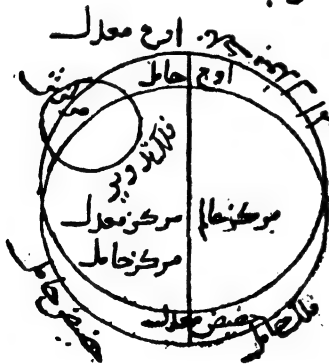 اوج معدل
اوج حامل
فلك تدوير
مركز معدل
مركز عالم
مركز حامل
حضيض معدل
فلك حامل
حضيض حامل